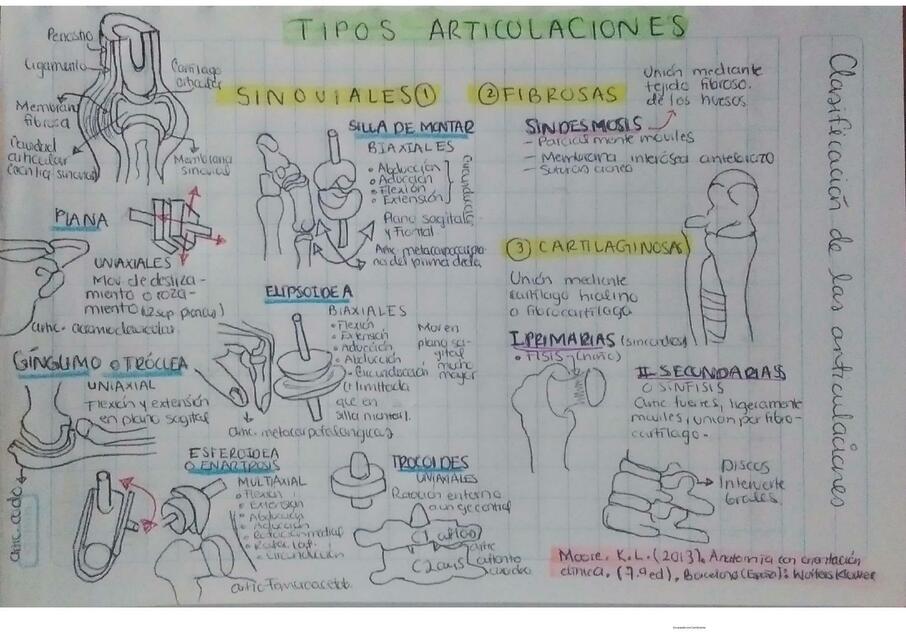 TIPOS ARTICULACIONES
Clasificación de las articulaciones
Periostio
Ligamento
Cartílago
articular
Membrana
fibrosa
Cavidad
articular
Membrana
sinovial
SINOVIALES ①
PLANA
UNIAXIALES
Mov. de desliza-
miento o roza-
miento (2 sup planas)
artic. acromoclavicular
GÍNGLIMO O TRÓCLEA
UNIAXIAL
Flexión y extensión
en plano sagital
artic. codo
SILLA DE MONTAR
BIAXIALES
• Abducción
• Aducción
• Flexión
• Extensión
Plano sagital
y frontal
ELIPSOIDEA
BIAXIALES
• Flexión
• Extensión
• Aducción
• Abducción
• Circunducción
(limitada
que en
silla montar).
Mov en
plano sa-
gital
mucho
mayor
artic. metacarpofalangicas
ESFEROIDEA
O ENARTROSIS
MULTIAXIAL
• Flexión
• Extensión
• Abducción
• Aducción
• Rotación medial
• Rota. lat.
• Circundución
TROCOIDES
UNIAXIALES
Rotación entorno
a un eje central
C1 atlas
C2 axis
artic
② FIBROSAS
Unión mediante
tejido fibroso.
de los huesos
SINDESMOSIS
- Parcialmente móviles
- Membrana interósea antebrazo
③ CARTILAGINOSAS
Unión mediante
cartílago hialino
o fibrocartílago
I. PRIMARIAS
• FISIS
II - SECUNDARIAS
O SÍNFISIS
artic fuertes, ligeramente
móviles, unión por fibro-
cartílago.
Discos
interverte
brales.
Moore. K.L. (2013). Anatomía con orientación
clínica. (7.ª ed), Barcelona (España): Wolters Kluwer